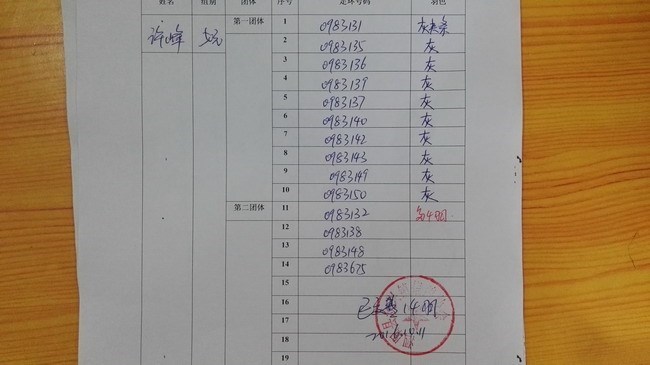 姓名 组别 团体 序号 足环号码 羽色
许峰 第一团体 1 0983131
2 0983135 灰
3 0983136 灰
4 0983139 灰
5 0983137 灰
6 0983140 灰
7 0983142 灰
8 0983143 灰
9 0983149 灰
10 0983150 灰
第二团体 11 0983132
12 0983138
13 0983148
14 0983675
15
16
17
18
19